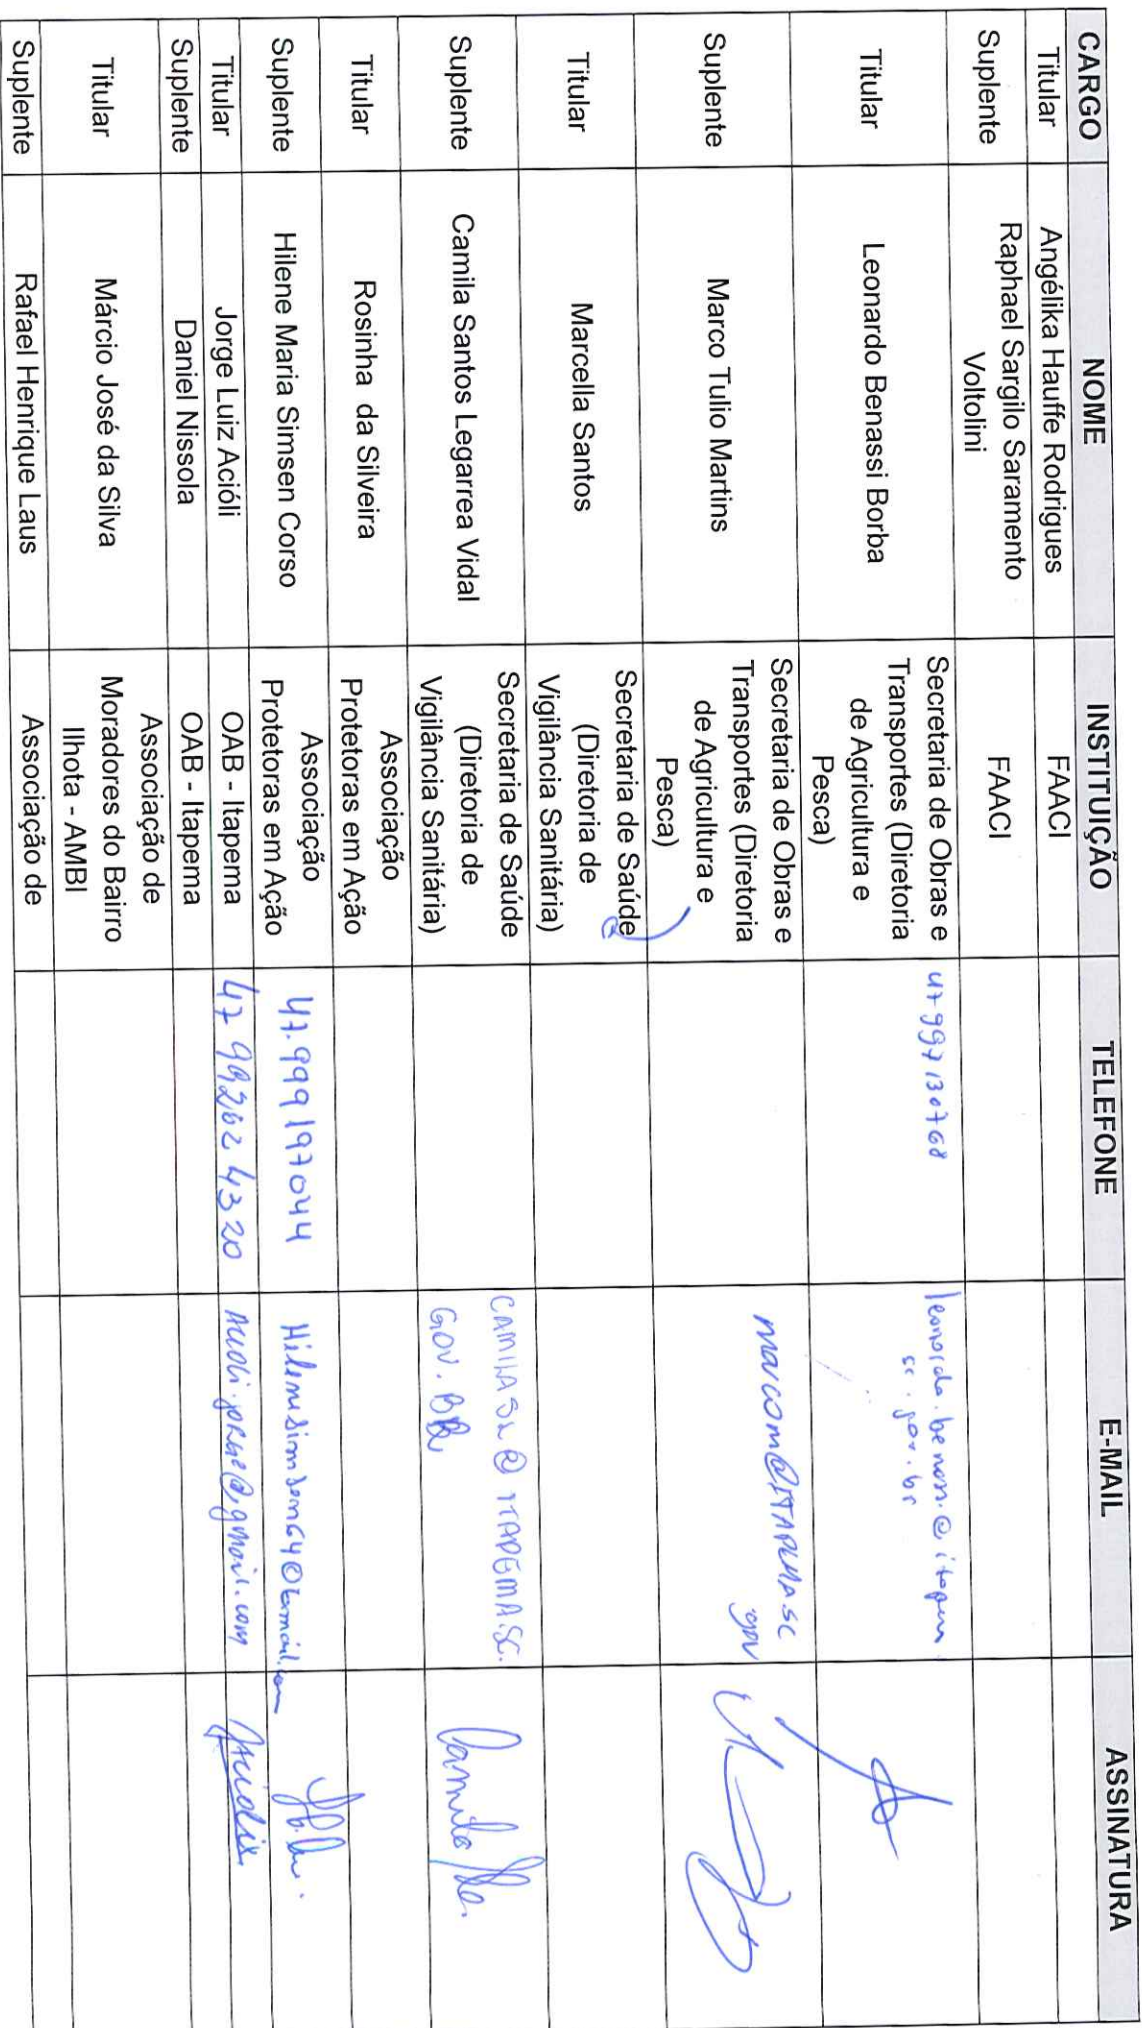 CARGO NOME INSTITUIÇÃO TELEFONE E-MAIL ASSINATURA
Titular Angélika Hauffe Rodrigues FAACI
Suplente Raphael Sargilo Saramento
Voltolini FAACI
Titular Leonardo Benassi Borba Secretaria de Obras e
Transportes (Diretoria
de Agricultura e
Pesca) 47 997130768
Suplente Marco Tulio Martins Secretaria de Obras e
Transportes (Diretoria
de Agricultura e
Pesca) marcom@ITAPEMA.SC
gov
Titular Marcella Santos Secretaria de Saúde
(Diretoria de
Vigilância Sanitária)
Suplente Camila Santos Legarrea Vidal Secretaria de Saúde
(Diretoria de
Vigilância Sanitária) CAMILASL@ITAPEMA.SC.
GOV.BR
Titular Rosinha da Silveira Associação
Protetoras em Ação
Suplente Hilene Maria Simsen Corso Associação
Protetoras em Ação 47.999197044
Titular Jorge Luiz Acióli OAB - Itapema 47 99262 4320 Acioli.jorge@gmail.com
Suplente Daniel Nissola OAB - Itapema
Titular Márcio José da Silva Associação de
Moradores do Bairro
Ilhota - AMBI
Suplente Rafael Henrique Laus Associação de